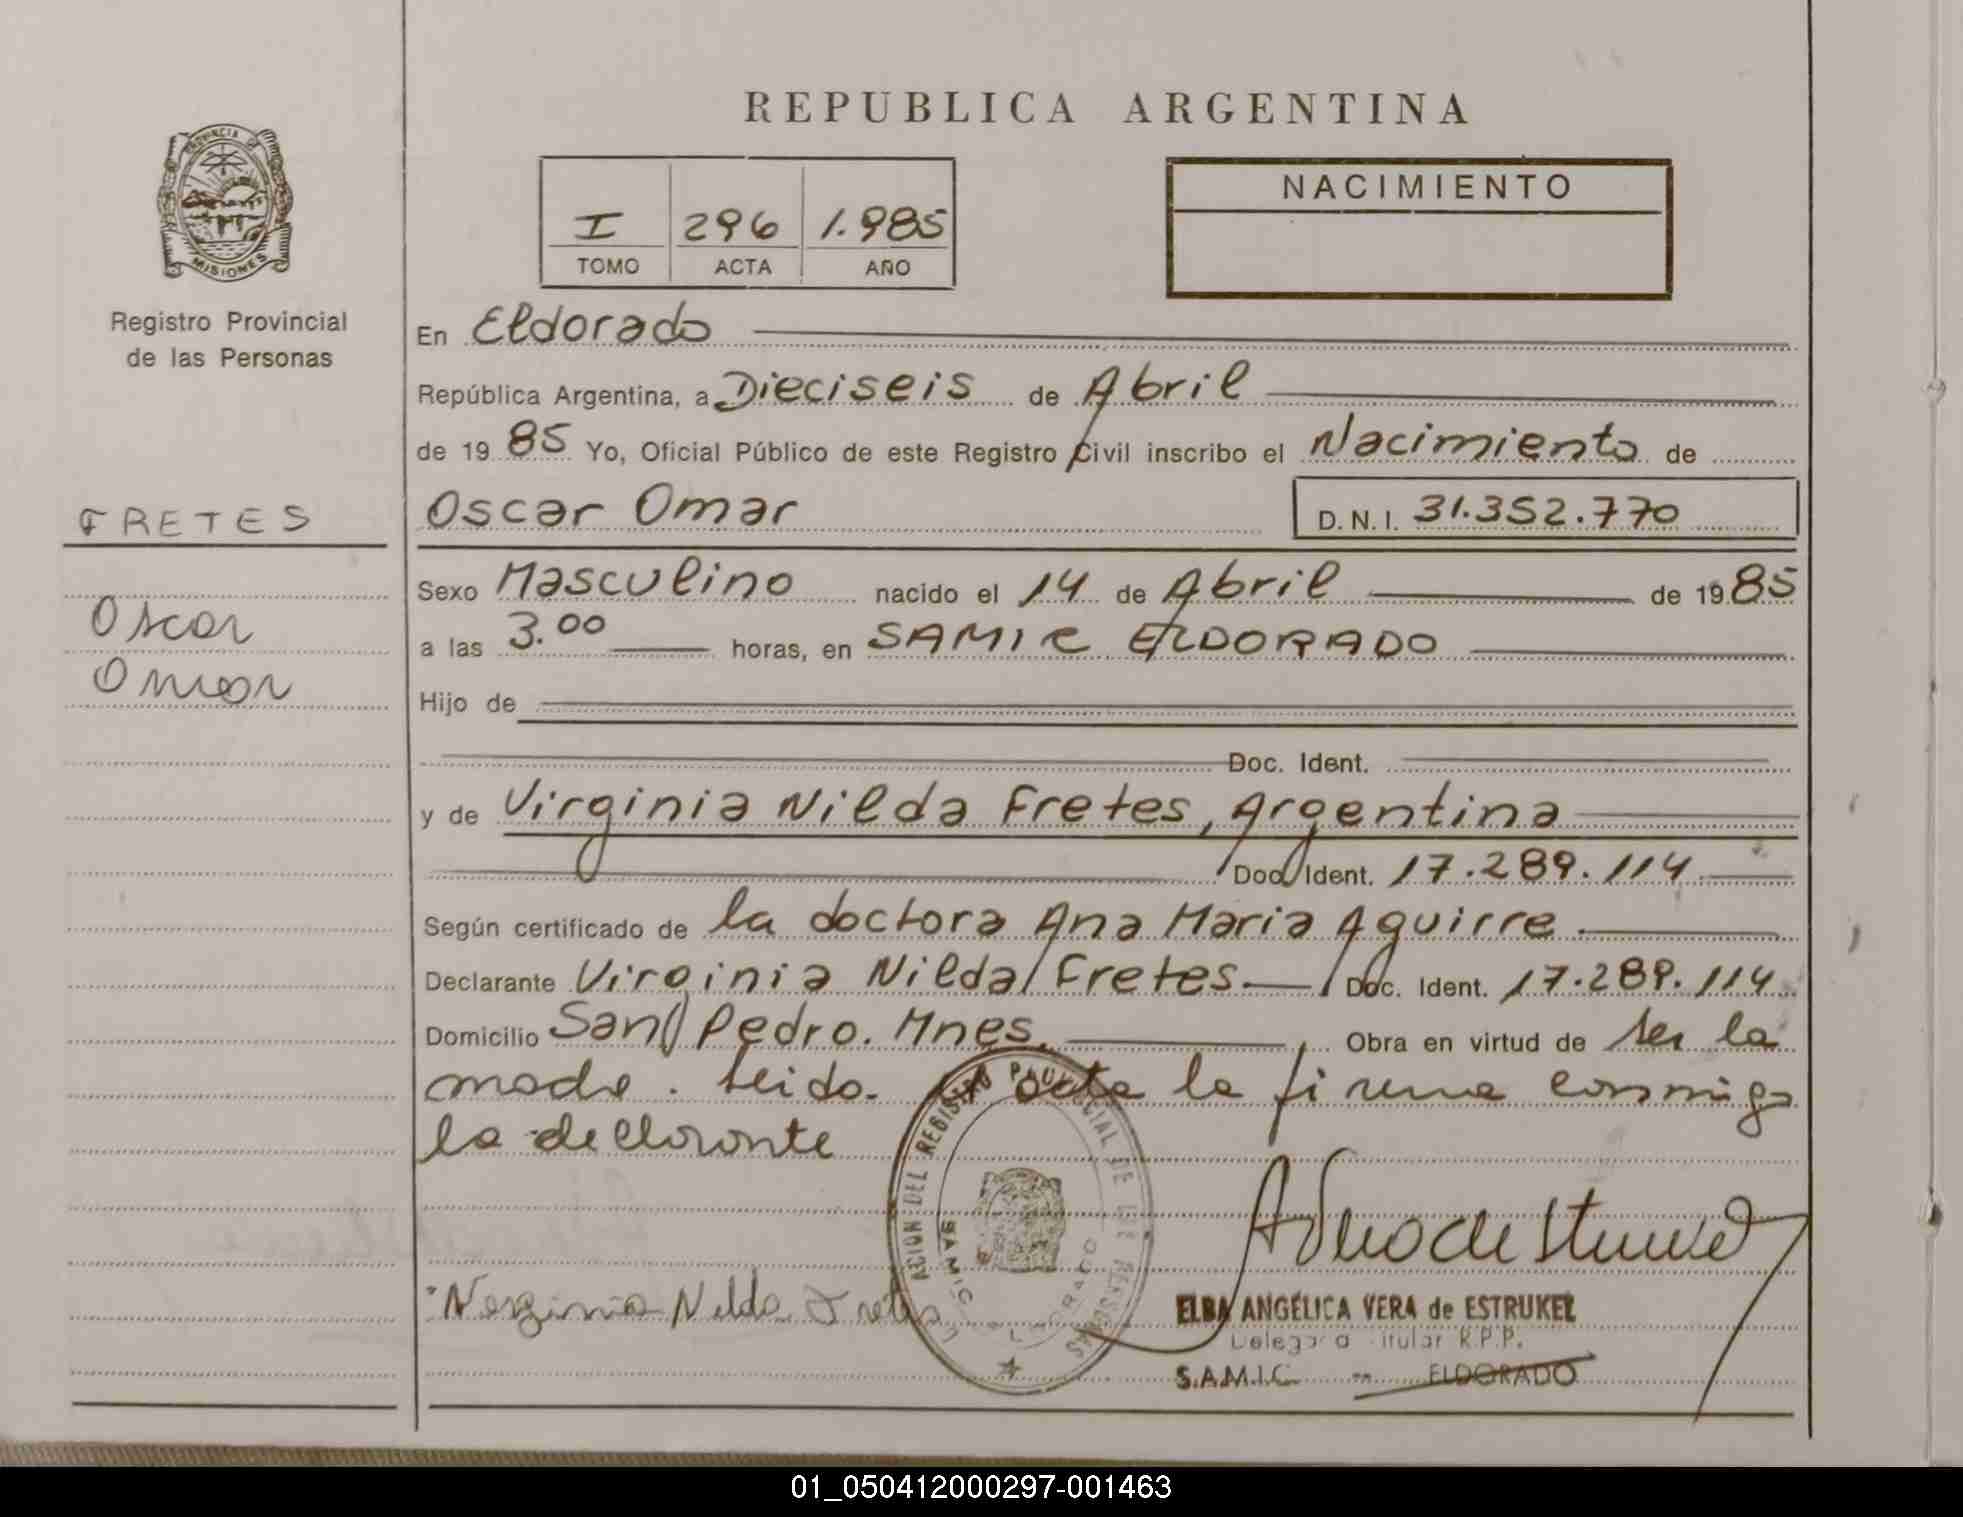 REPUBLICA ARGENTINA
PROVINCIA DE
MISIONES
Registro Provincial
de las Personas
I 296 1.985
TOMO ACTA AÑO
NACIMIENTO
En Eldorado
República Argentina, a Dieciseis de Abril
de 1985 Yo, Oficial Público de este Registro Civil inscribo el Nacimiento de
FRETES
Oscar Omar D.N.I. 31.352.770
Sexo Masculino nacido el 14 de Abril de 1985
Oscar
a las 3.00 horas, en SAMIC ELDORADO
Omar
Hijo de
Doc. Ident.
y de Virginia Nilda Fretes, Argentina
Doc. Ident. 17.289.114
Según certificado de la doctora Ana Maria Aguirre.
Declarante Virginia Nilda Fretes. Doc. Ident. 17.289.114
Domicilio San Pedro. Mnes. Obra en virtud de ser la
madre. Leido. el acta la firma conmigo
la declarante
REGISTRO PROVINCIAL DE LAS PERSONAS
SAMIC ELDORADO
Verginia Nilda Fretes
ELBA ANGÉLICA VERA de ESTRUKEL
Delegada Titular R.P.P.
S.A.M.I.C. - ELDORADO
01_050412000297-001463